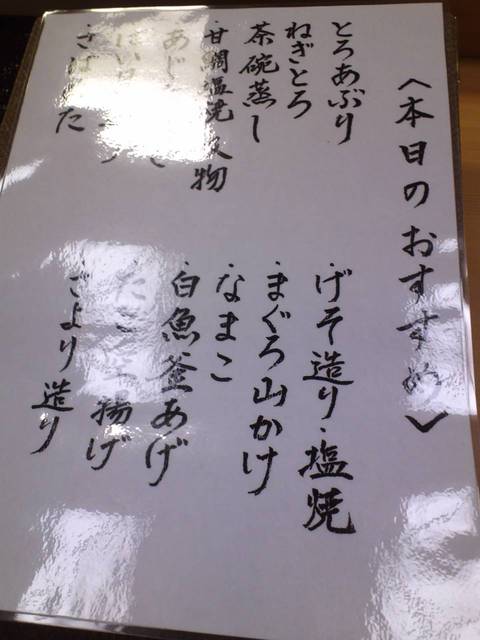 <本日のおすすめ>
とろあぶり
ねぎとろ
茶碗蒸し
甘鯛塩焼 吸物
あじ
ばい
さば
げそ造り・塩焼
まぐろ山かけ
なまこ
白魚釜あげ
たこ 揚げ
さより造り